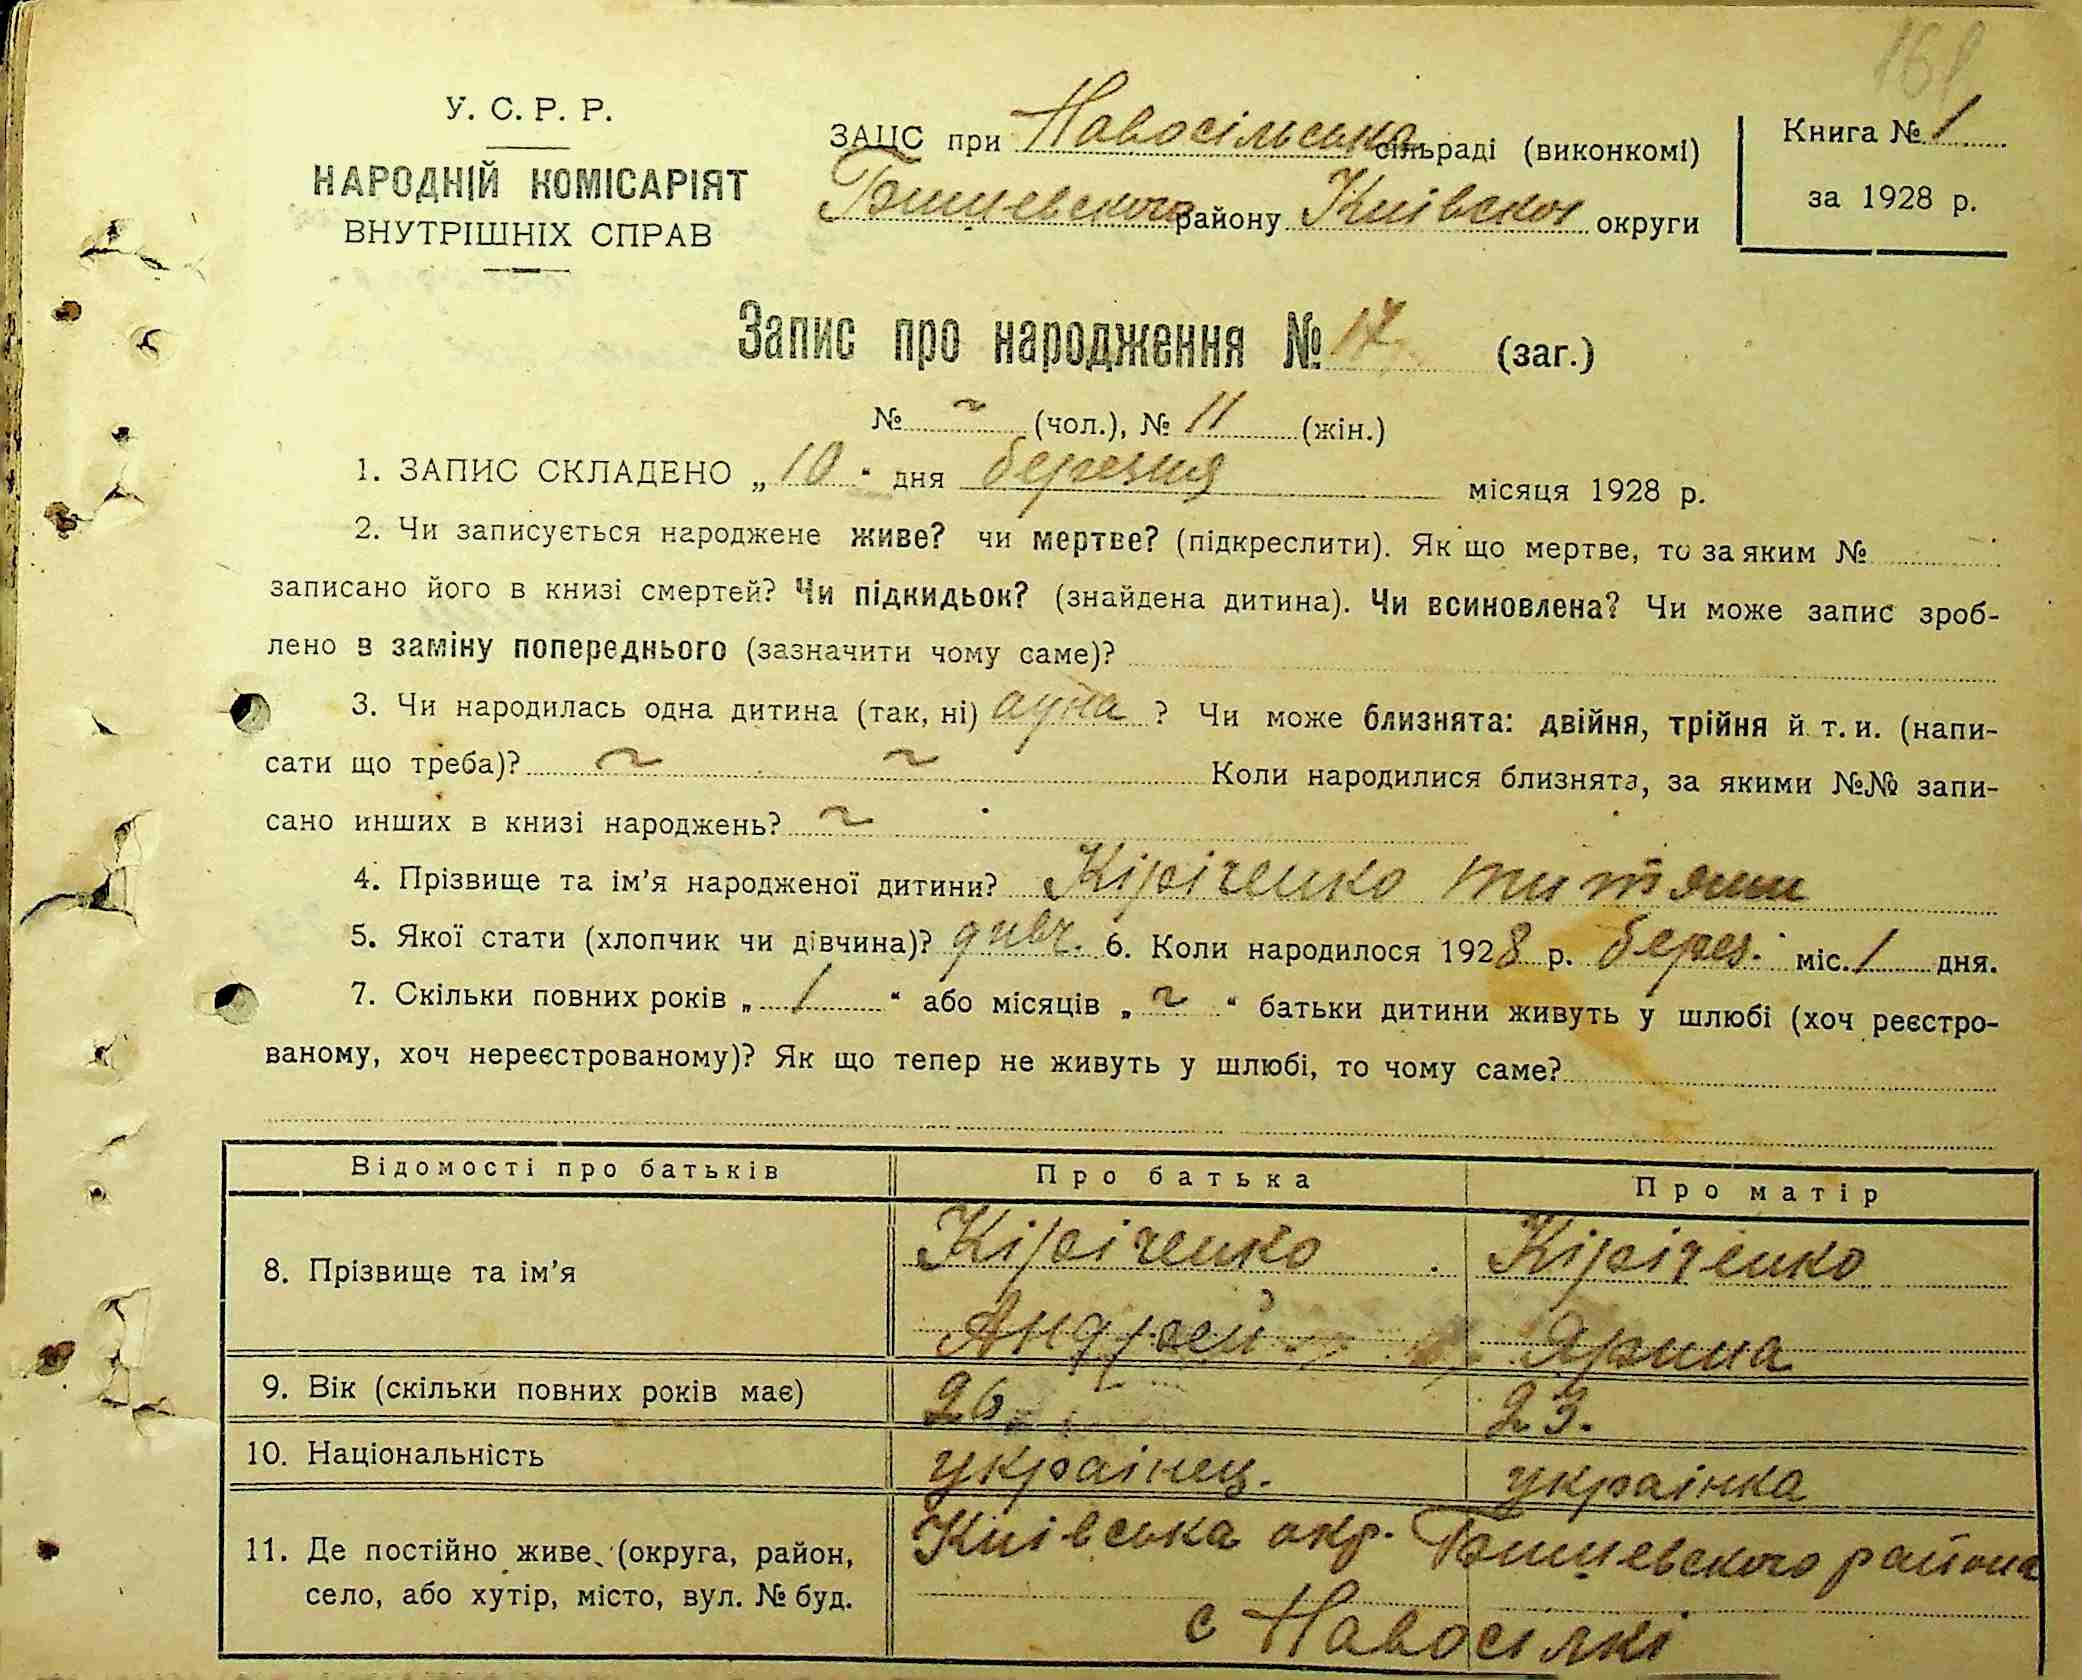 161
У. С. Р. Р.
НАРОДНІЙ КОМІСАРІЯТ
ВНУТРІШНІХ СПРАВ
ЗАЦС при Навосільська сільраді (виконкомі)
Бишевского району Київскоі округи
Книга № 1
за 1928 р.
Запис про народження № 17 (заг.)
№ ~ (чол.), № 11 (жін.)
1. ЗАПИС СКЛАДЕНО „ 10 " дня березня місяця 1928 р.
2. Чи записується народжене живе? чи мертве? (підкреслити). Як що мертве, то за яким №
записано його в книзі смертей? Чи підкидьок? (знайдена дитина). Чи всиновлена? Чи може запис зроб-
лено в заміну попереднього (зазначити чому саме)?
3. Чи народилась одна дитина (так, ні) ? Чи може близнята: двійня, трійня й т. и. (напи-
сати що треба)? ~ ~ Коли народилися близнята, за якими №№ запи-
сано инших в книзі народжень? ~
4. Прізвище та ім'я народженої дитини? Кіріченко
5. Якої стати (хлопчик чи дівчина)? дивч. 6. Коли народилося 1928 р. берез. міс. 1 дня.
7. Скільки повних років „ 1 " або місяців „ ~ " батьки дитини живуть у шлюбі (хоч реєстро-
ваному, хоч нереєстрованому)? Як що тепер не живуть у шлюбі, то чому саме?
Відомості про батьків Про батька Про матір
8. Прізвище та ім'я Кіріченко Кіріченко
Андрей Ярина
9. Вік (скільки повних років має) 26 23.
10. Національність украінец. украінка
11. Де постійно живе, (округа, район, Киівська окр. Бишевского района
село, або хутір, місто, вул. № буд. с Навосілкі